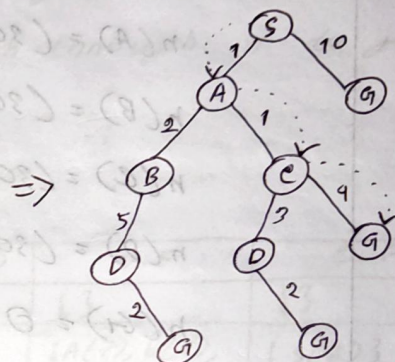 S
1 10
A G
2 1
=> B C
5 3 4
D D G
2 2
G G